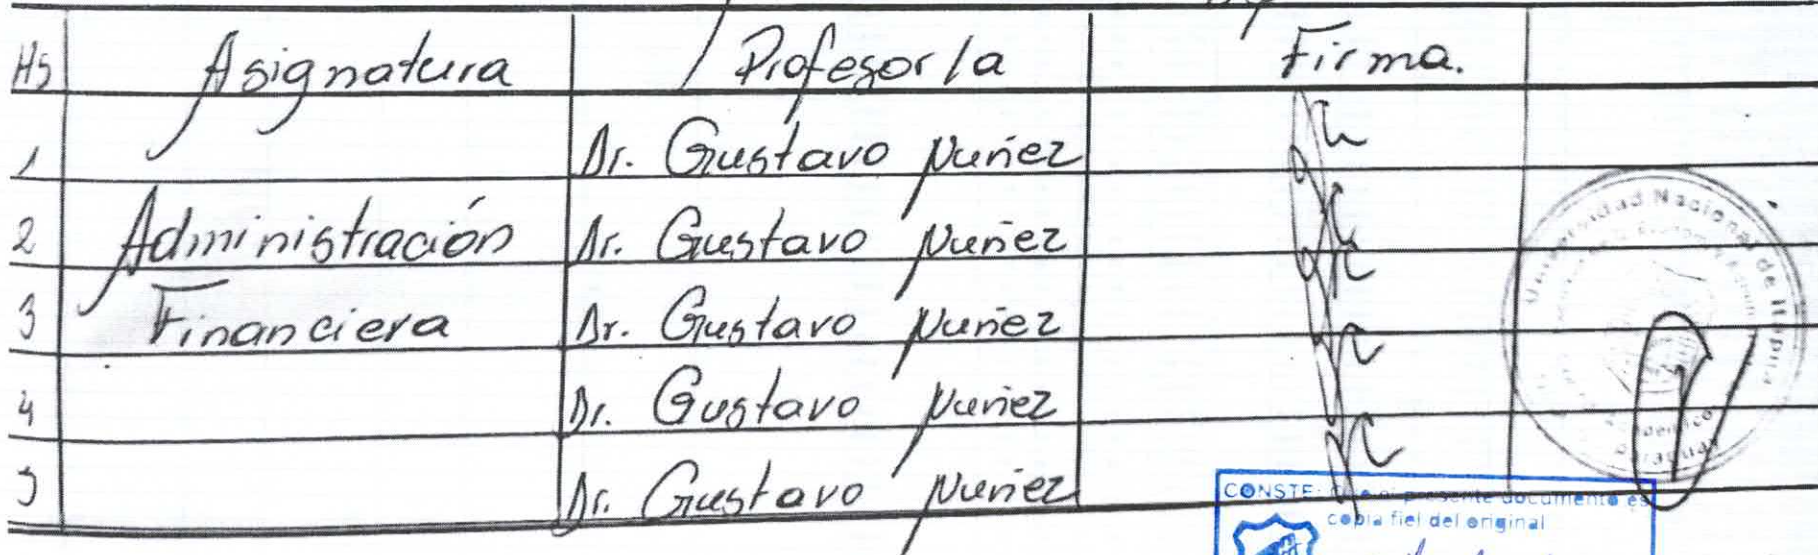 Hs Asignatura Profesor/a Firma.
1 Dr. Gustavo Nuñez
2 Administración Dr. Gustavo Nuñez
3 Financiera Dr. Gustavo Nuñez
4 Dr. Gustavo Nuñez
5 Dr. Gustavo Nuñez
Universidad Nacional de Itapúa
Paraguay
CONSTE: Que el presente documento es
copia fiel del original